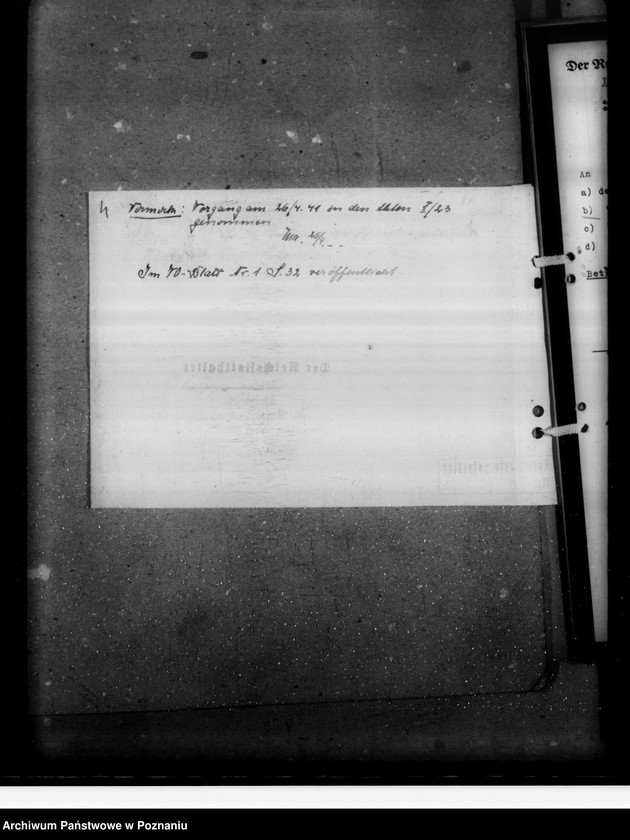 Vermerk: Vorgang am 26/4. 41 zu den Akten I/23
genommen
Im VO-Blatt Nr. 1 S. 32 veröffentlicht
Der Reichsstatthalter
Der R
An
a) de
b)
c)
d)
Bet
Archiwum Państwowe w Poznaniu